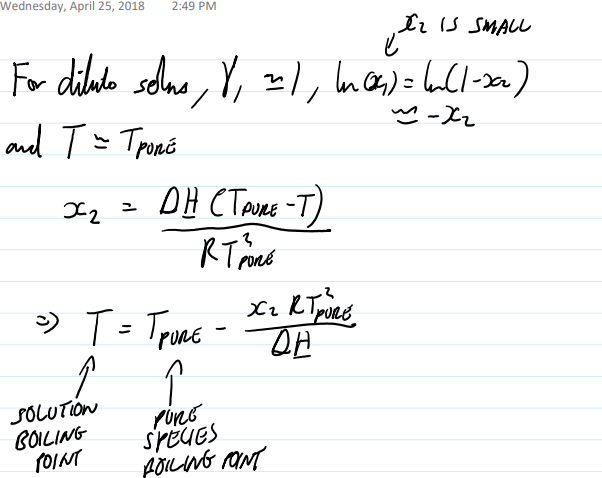 Wednesday, April 25, 2018 2:49 PM
x₂ IS SMALL
For dilute solns, γ₁ ≃ 1, ln(x₁) = ln(1-x₂)
≃ -x₂
and T ≃ TPURE
x₂ = ΔH (TPURE - T) / RT²PURE
⇒ T = TPURE - x₂ RT²PURE / ΔH
SOLUTION BOILING POINT
PURE SPECIES BOILING POINT